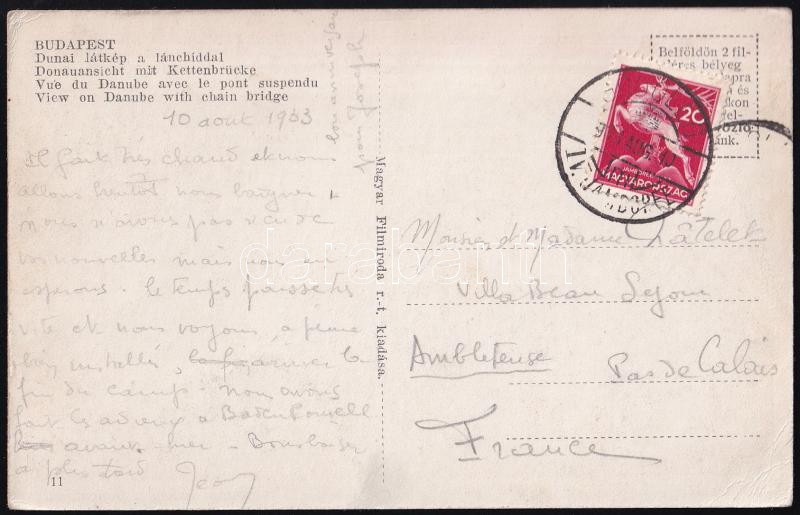 BUDAPEST
Dunai látkép a lánchiddal
Donauansicht mit Kettenbrücke
Vue du Danube avec le pont suspendu
View on Danube with chain bridge
10 aout 1933
Il fait très chaud et nous
allons bientôt nous baigner
nous n'avons pas reçu de
vos nouvelles mais nous en
esperons le temps passe très
vite et nous voyons, a peine
installés, arriver la
fin du camp. nous avons
fait les adieux a Baden Powell
avant hier - Bons baisers
a plus tard Jean
bon anniversaire
pour Joseph
11
Magyar Filmiroda r.-t. kiadása.
Belföldön 2 fil-
léres bélyeg
20
JAMBOREE
MAGYARORSZÁG
Monsieur et Madame Châtelet
Villa Beau Sejour
Ambleteuse
Pas de Calais
France
darabanth